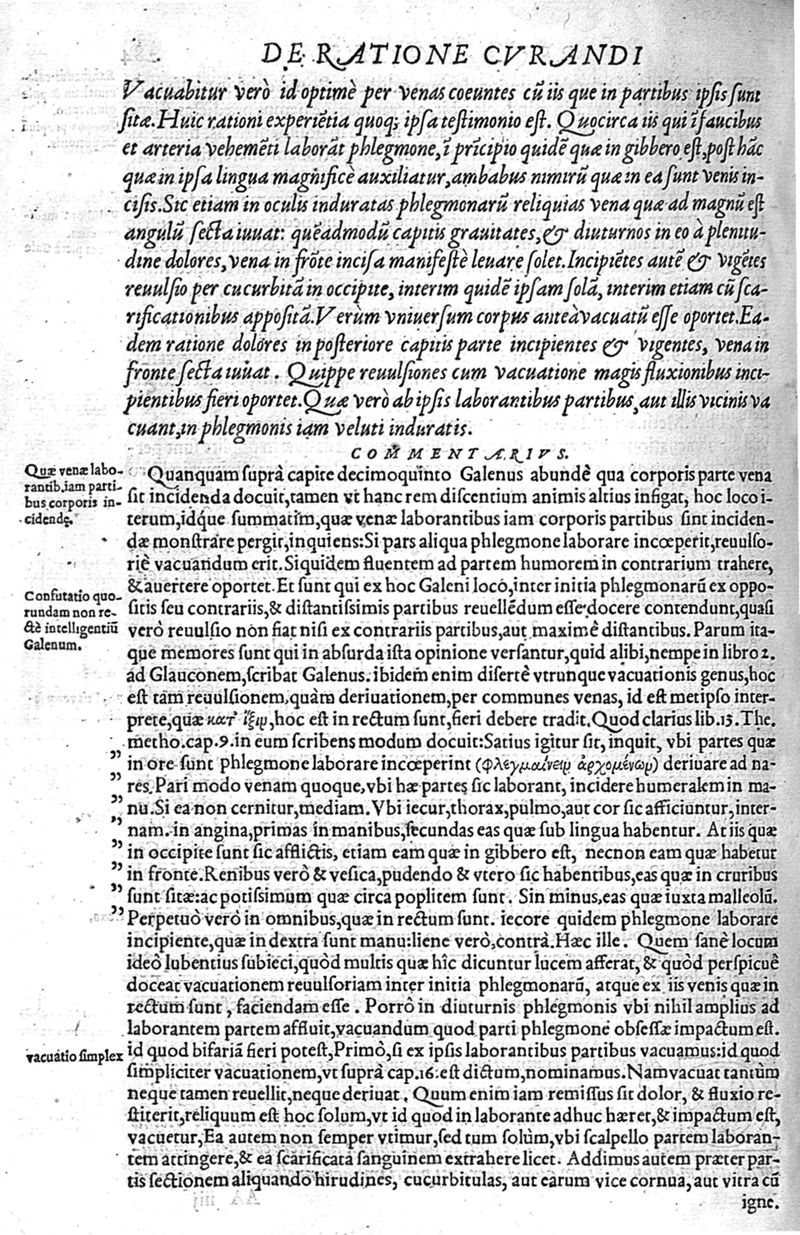 DE RATIONE CVRANDI
Vacuabitur verò id optimè per venas coeuntes cũ iis que in partibus ipsis sunt
sitæ. Huic rationi experiẽtia quoq; ipsa testimonio est. Quocirca iis qui ĩ faucibus
et arteria vehemẽti laborãt phlegmone, ĩ prĩcipio quidẽ quæ in gibbero est, post hãc
quæ in ipsa lingua magnificè auxiliatur, ambabus nimirũ quæ in ea sunt venis in-
cisis. Sic etiam in oculis induratas phlegmonarũ reliquias vena quæ ad magnũ est
angulũ secta iuuat: quẽadmodũ capitis grauitates, & diuturnos in eo à plenitu-
dine dolores, vena in frõte incisa manifestè leuare solet. Incipiẽtes autẽ & vigẽtes
reuulsio per cucurbitã in occipite, interim quidẽ ipsam solã, interim etiam cũ sca-
rificationibus appositã. Verùm vniuersum corpus anteà vacuatũ esse oportet. Ea-
dem ratione dolores in posteriore capitis parte incipientes & vigentes, vena in
fronte secta iuuat. Quippe reuulsiones cum vacuatione magis fluxionibus inci-
pientibus fieri oportet. Quæ verò ab ipsis laborantibus partibus, aut illis vicinis va
cuant, in phlegmonis iam veluti induratis.
COMMENTARIVS.
Quæ venæ labo-
rantib. iam parti-
bus corporis in-
cidendę.
Quanquam suprà capite decimoquinto Galenus abundè qua corporis parte vena
sit incidenda docuit, tamen vt hanc rem discentium animis altius infigat, hoc loco i-
terum, idq́ue summatim, quæ venæ laborantibus iam corporis partibus sint inciden-
dæ monstrare pergit, inquiens: Si pars aliqua phlegmone laborare incœperit, reuulso-
riè vacuandum erit. Siquidem fluentem ad partem humorem in contrarium trahere,
& auertere oportet. Et sunt qui ex hoc Galeni loco, inter initia phlegmonarũ ex oppo-
sitis seu contrariis, & distantissimis partibus reuellẽdum esse docere contendunt, quasi
verò reuulsio non fiat nisi ex contrariis partibus, aut maximè distantibus. Parum ita-
que memores sunt qui in absurda ista opinione versantur, quid alibi, nempe in libro 2.
ad Glauconem, scribat Galenus. ibidem enim disertè vtrunque vacuationis genus, hoc
est tàm reuulsionem, quàm deriuationem, per communes venas, id est metipso inter-
prete, quæ κατ᾽ ἴξιρ, hoc est in rectum sunt, fieri debere tradit. Quod clarius lib. 13. The.
metho. cap. 9. in eum scribens modum docuit: Satius igitur sit, inquit, vbi partes quæ
Confutatio quo-
rundam non re-
ctè intelligentiũ
Galenum.
in ore sunt phlegmone laborare incœperint (φλεγμαίνειρ ἀρχομένωρ) deriuare ad na-
res. Pari modo venam quoque, vbi hæ partes sic laborant, incidere humeralem in ma-
nu. Si ea non cernitur, mediam. Vbi iecur, thorax, pulmo, aut cor sic afficiuntur, inter-
nam. in angina, primas in manibus, secundas eas quæ sub lingua habentur. At iis quæ
in occipite sunt sic afflictis, etiam eam quæ in gibbero est, necnon eam quæ habetur
in fronte. Renibus verò & vesica, pudendo & vtero sic habentibus, eas quæ in cruribus
sunt sitæ: ac potissimum quæ circa poplitem sunt. Sin minus, eas quæ iuxta malleolũ.
Perpetuò verò in omnibus, quæ in rectum sunt. iecore quidem phlegmone laborare
incipiente, quæ in dextra sunt manu: liene verò, contrà. Hæc ille. Quem sanè locum
ideò lubentius subieci, quòd multis quæ hîc dicuntur lucem afferat, & quòd perspicuè
doceat vacuationem reuulsoriam inter initia phlegmonarũ, atque ex iis venis quæ in
rectum sunt, faciendam esse. Porrò in diuturnis phlegmonis vbi nihil amplius ad
laborantem partem affluit, vacuandum quod parti phlegmone obsessæ impactum est.
vacuatio simplex
id quod bifariã fieri potest, Primò, si ex ipsis laborantibus partibus vacuamus: id quod
simpliciter vacuationem, vt suprà cap. 16. est dictum, nominamus. Nam vacuat tantùm
neque tamen reuellit, neque deriuat. Quum enim iam remissus sit dolor, & fluxio re-
stiterit, reliquum est hoc solum, vt id quod in laborante adhuc hæret, & impactum est,
vacuetur, Ea autem non semper vtimur, sed tum solùm, vbi scalpello partem laboran-
tem attingere, & ea scarificata sanguinem extrahere licet. Addimus autem præter par-
tis sectionem aliquando hirudines, cucurbitulas, aut earum vice cornua, aut vitra cũ
igne.